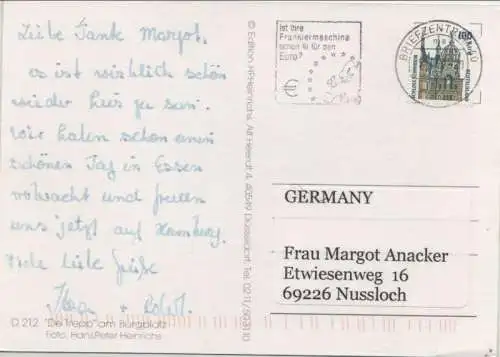 Liebe Tante Margot,
es ist wirklich schön
wieder hier zu sein.
Wir haben schon einen
schönen Tag in Essen
verbracht und freuen
uns jetzt auf Hamburg.
Viele liebe Grüße
+
D 212 "De Trepp" am Burgplatz
Foto: Hans Peter Heinrichs
© Edition HPHeinrichs, Alt Heerdt 4, 40549 Düsseldorf, Tel. 0211/
Ist Ihre
Frankiermaschine
schon fit für den
Euro?
€
BRIEFZENTRUM
100
GERMANY
Frau Margot Anacker
Etwiesenweg 16
69226 Nussloch